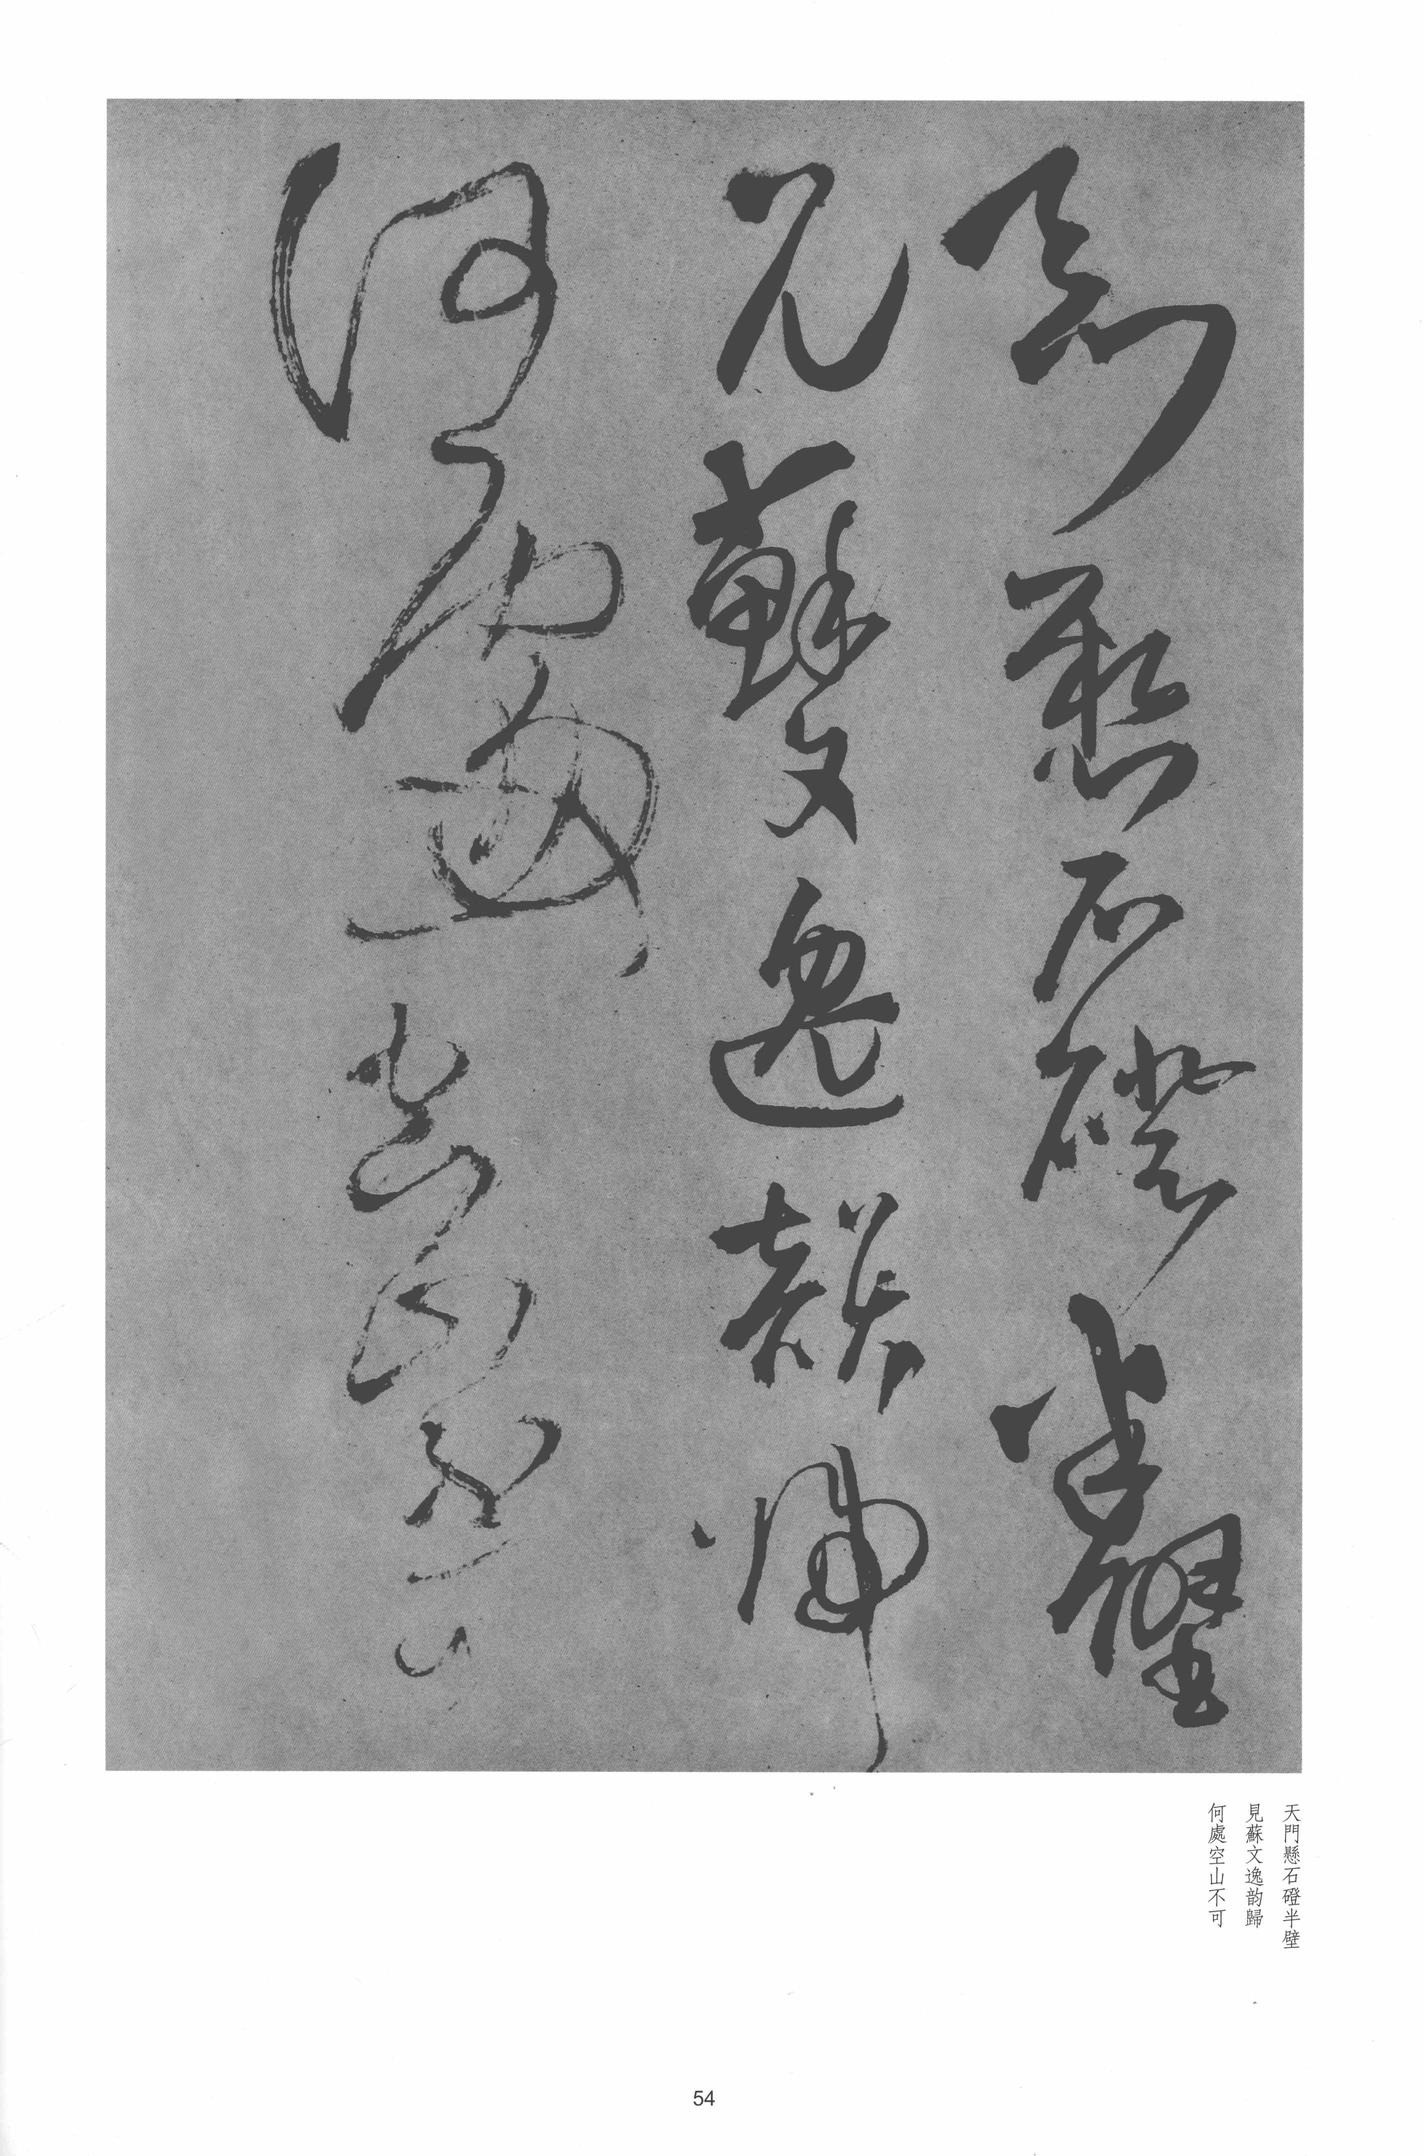 天門懸石磴半壁
見蘇文逸韵歸
何處空山不可
天門懸石磴半壁
見蘇文逸韵歸
何處空山不可
54